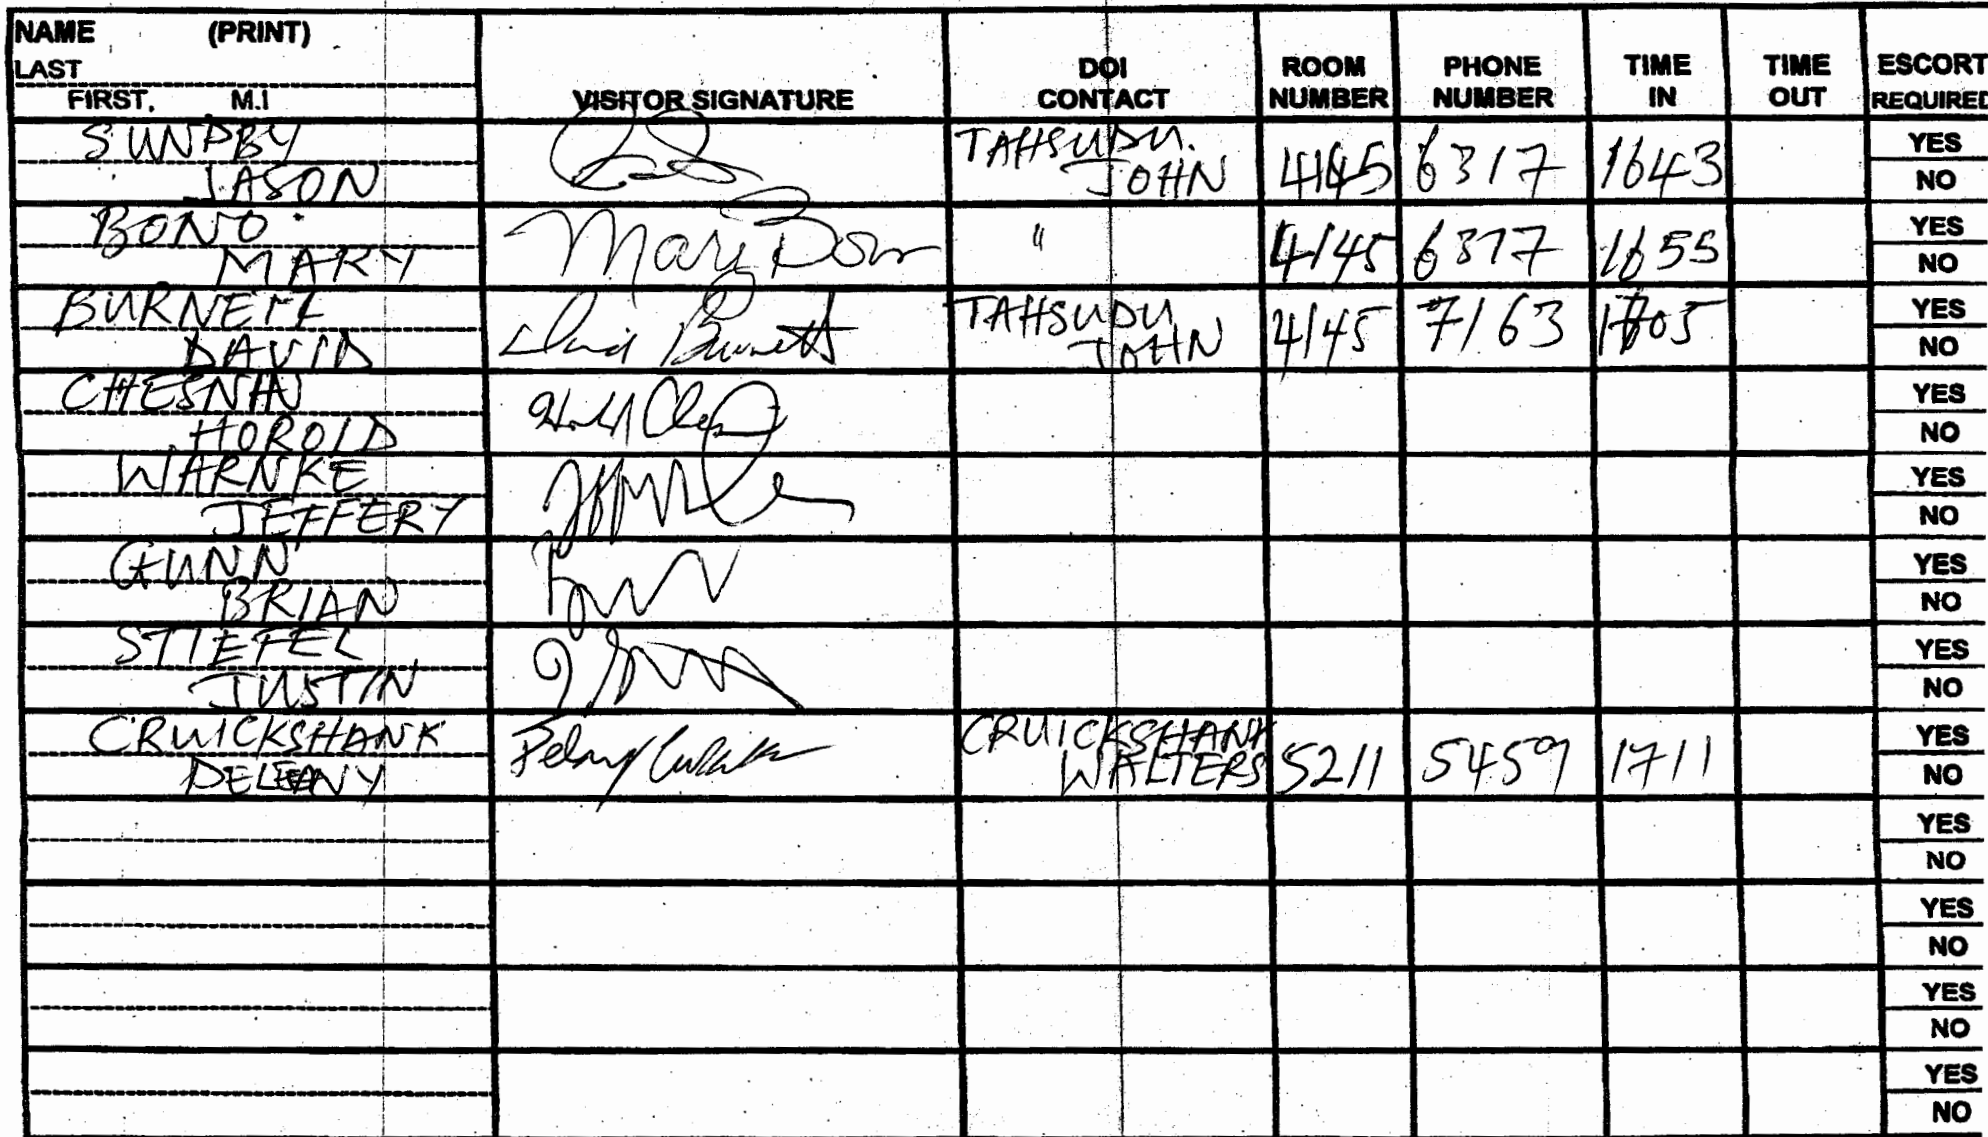 NAME (PRINT)
LAST
FIRST, M.I
VISITOR SIGNATURE
DOI CONTACT
ROOM NUMBER
PHONE NUMBER
TIME IN
TIME OUT
ESCORT REQUIRED
SUNDBY
JASON
TAHSUDU.
JOHN
4145 6317 1643
YES
NO
BONO
MARY
Mary Bono
"
4145 6317 1655
YES
NO
BURNETT
DAVID
David Burnett
TAHSUDU
JOHN
4145 7163 1705
YES
NO
CHESNIN
HOROLD
YES
NO
WARNKE
JEFFERY
YES
NO
GUNN
BRIAN
YES
NO
STIEFEL
JUSTIN
YES
NO
CRUICKSHANK
DELEANY
CRUICKSHANK
WALTERS
5211 5459 1711
YES
NO
YES
NO
YES
NO
YES
NO
YES
NO